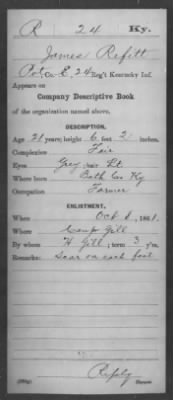 R 24 Ky.
James Refitt
Co. E, 24 Reg't Kentucky Inf.
Appears on
Company Descriptive Book
of the organization named above.
DESCRIPTION.
Age 21 years; height 6 feet 2 inches.
Complexion Fair
Eyes Grey; hair Lt
Where born Bath Co Ky
Occupation Farmer
ENLISTMENT.
When Oct 8, 1861.
Where Camp Gill
By whom H Gill; term 3 y'rs.
Remarks: Scar on each foot
Copyist.